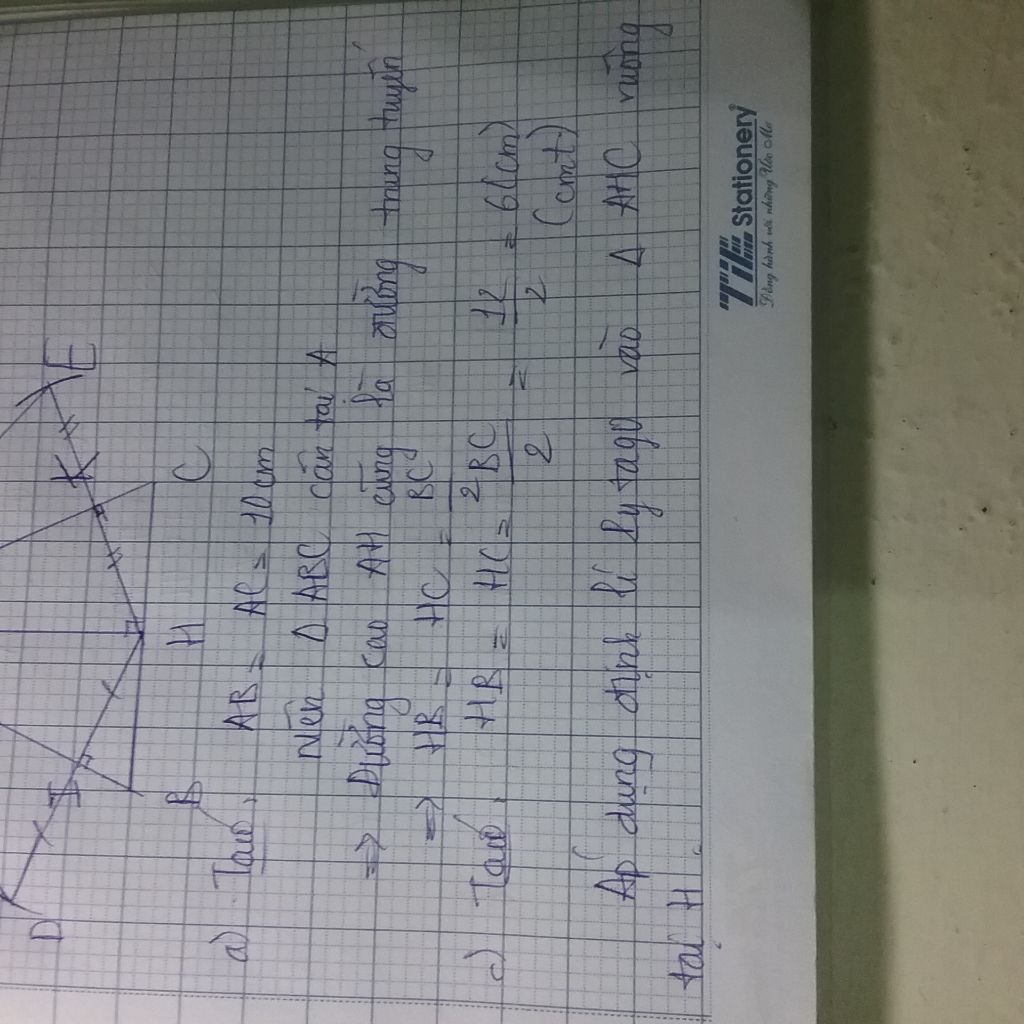 D
I
K
E
B
H
C
a) Ta có: AB = AC = 10cm
Nên Δ ABC cân tại A
=> Đường cao AH cũng là đường trung tuyến
=> HB = HC = BC
2
c) Ta có: HB = HC = BC/2 = 12/2 = 6(cm)
(cmt)
Áp dụng định lí Py tago vào Δ AHC vuông
tại H.
TiL Stationery
Đồng hành với những Ước Mơ